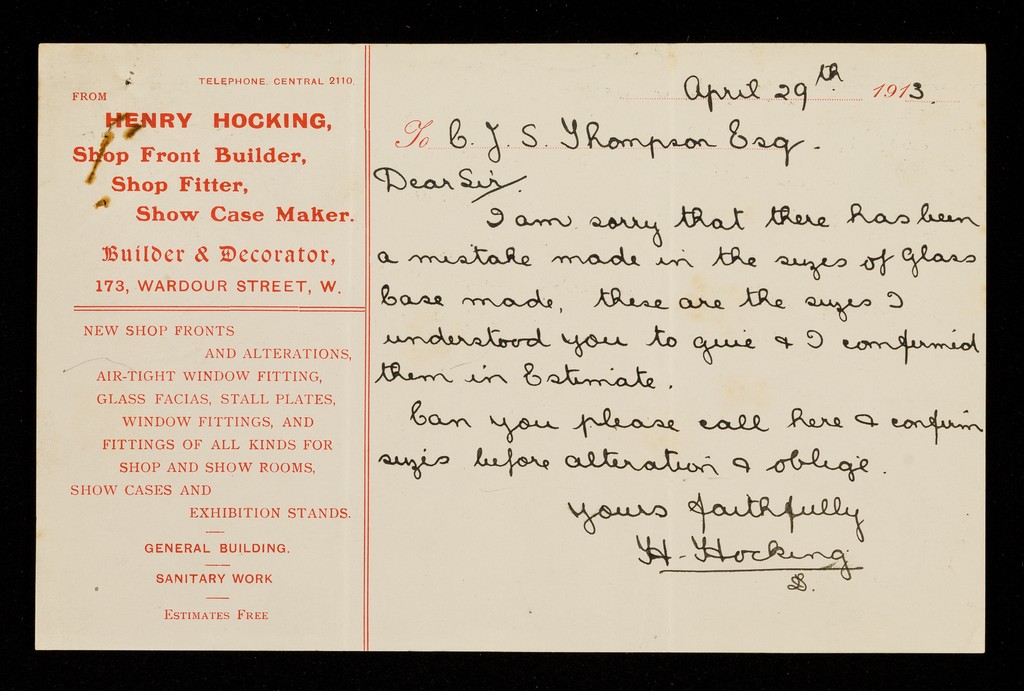 TELEPHONE, CENTRAL 2110.
FROM
HENRY HOCKING,
Shop Front Builder,
Shop Fitter,
Show Case Maker.
Builder & Decorator,
173, WARDOUR STREET, W.
NEW SHOP FRONTS
AND ALTERATIONS,
AIR-TIGHT WINDOW FITTING,
GLASS FACIAS, STALL PLATES,
WINDOW FITTINGS, AND
FITTINGS OF ALL KINDS FOR
SHOP AND SHOW ROOMS,
SHOW CASES AND
EXHIBITION STANDS.
GENERAL BUILDING.
SANITARY WORK
ESTIMATES FREE
April 29th 1913.
To C. J. S. Thompson Esq.
Dear Sir/.
I am sorry that there has been
a mistake made in the sizes of Glass
Case made, these are the sizes I
understood you to give & I confirmed
them in Estimate.
Can you please call here & confirm
sizes before alteration & oblige.
Yours faithfully
H. Hocking